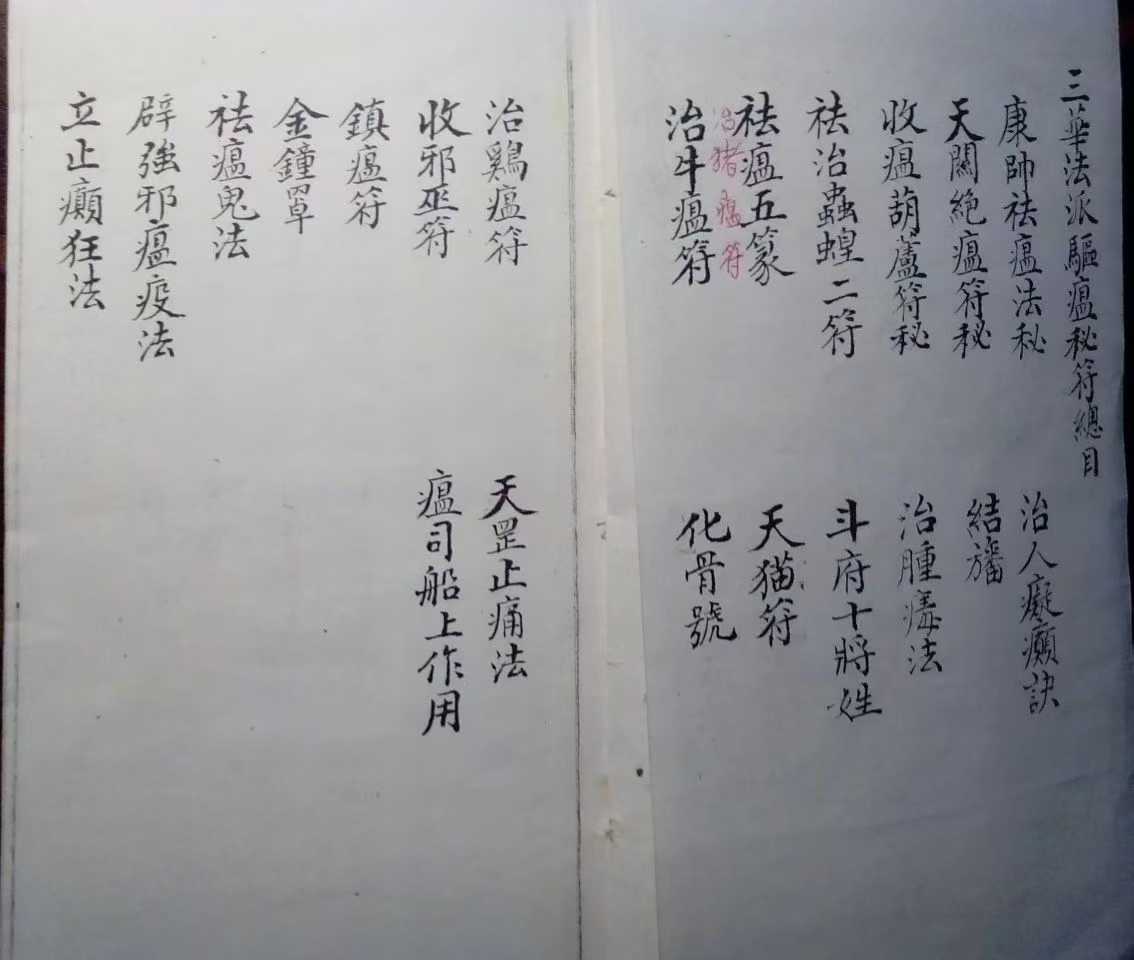 三華法派驅瘟秘符總目
康帥祛瘟法秘
天關絶瘟符秘
收瘟葫蘆符秘
祛治蟲蝗二符
祛瘟五篆
治猪瘟符
治牛瘟符
治人癡癲訣
結旛
治腫毒法
斗府十將姓
天猫符
化骨號
治鷄瘟符
收邪巫符
鎮瘟符
金鐘罩
祛瘟鬼法
辟強邪瘟疫法
立止癲狂法
天罡止痛法
瘟司船上作用